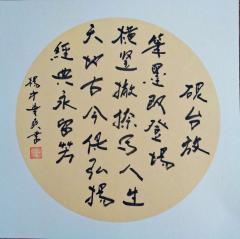 砚台放
笔墨跃登场
横竖撇捺写人生
天地古今任弘扬
经典永留芳